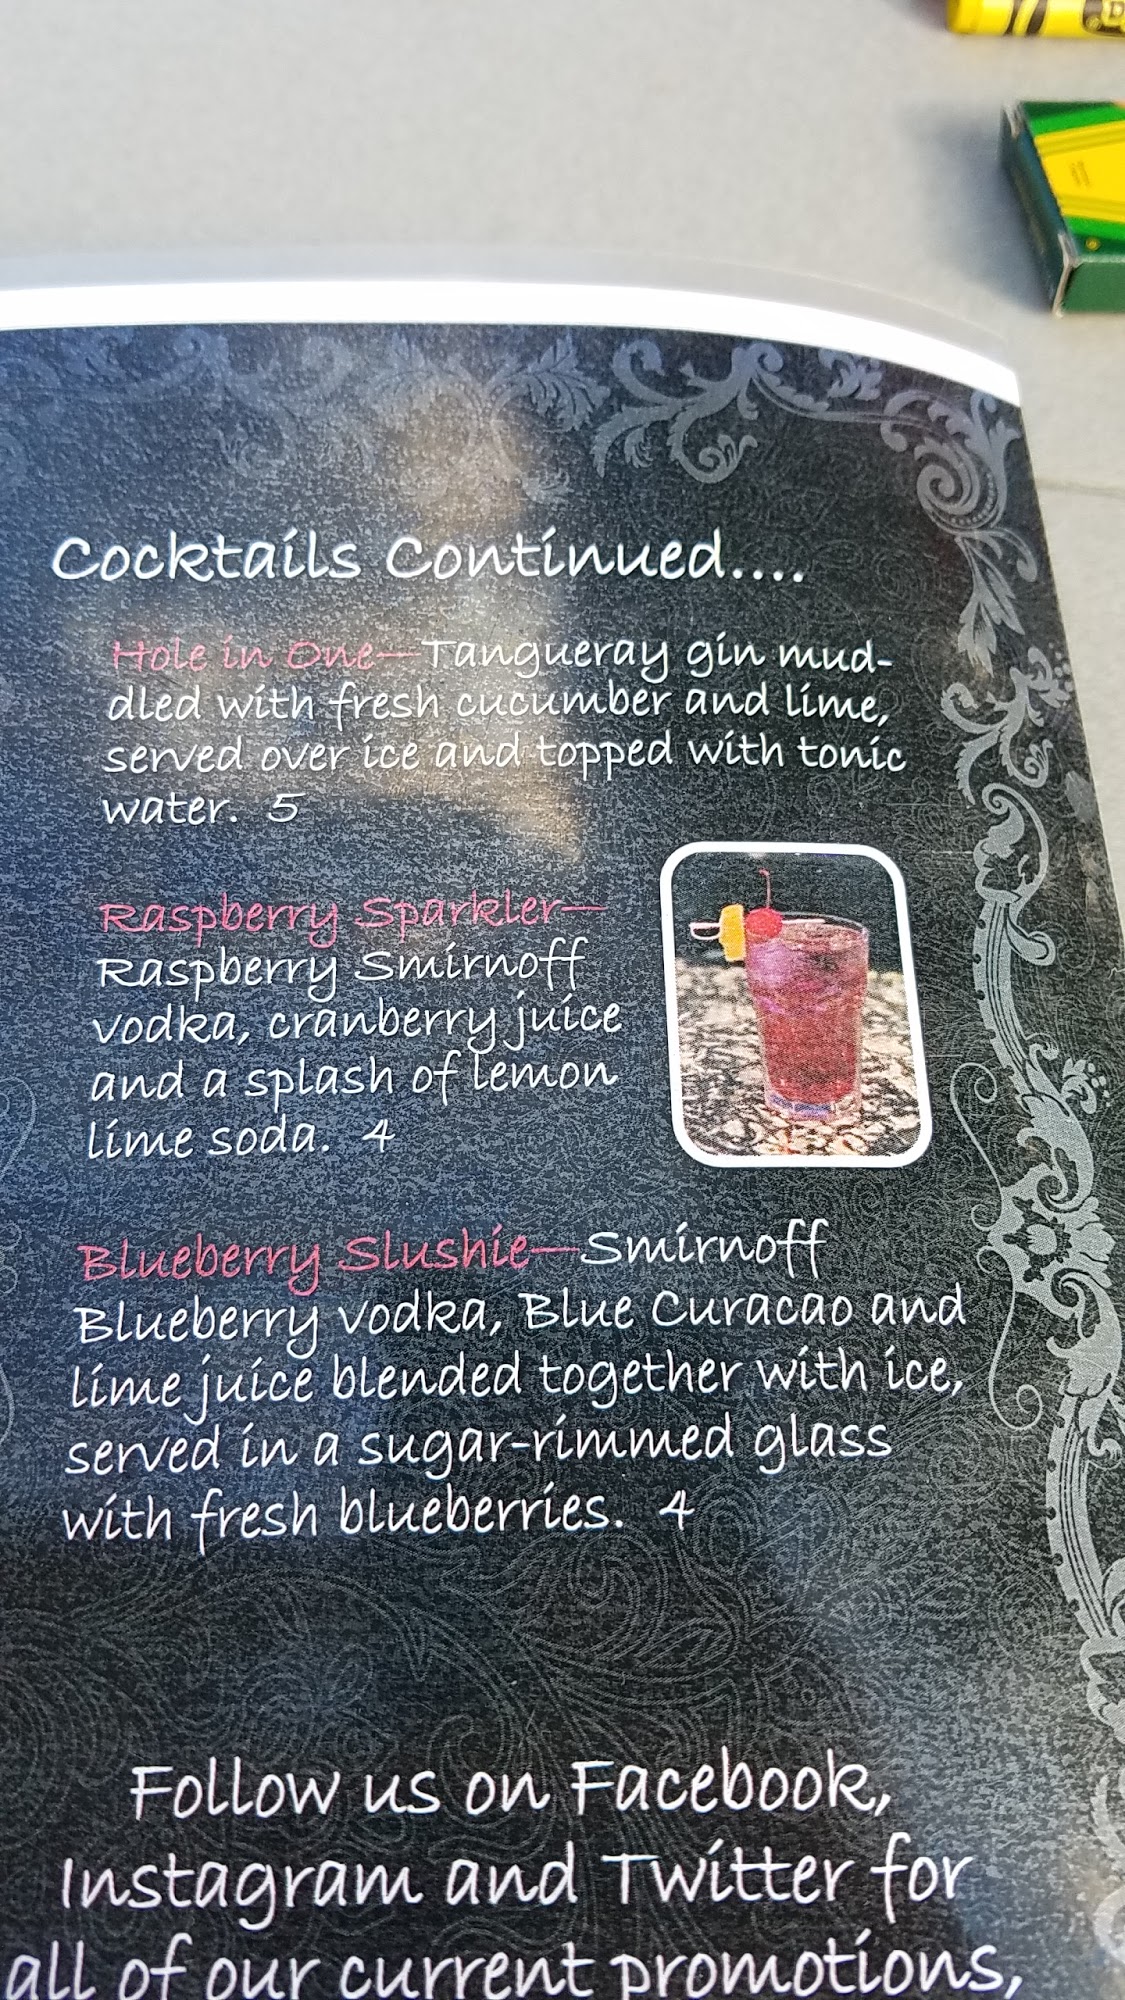 Cocktails Continued....
Hole in One—Tangueray gin mud-
dled with fresh cucumber and lime,
served over ice and topped with tonic
water. 5
Raspberry Sparkler—
Raspberry Smirnoff
vodka, cranberry juice
and a splash of lemon
lime soda. 4
Blueberry Slushie—Smirnoff
Blueberry vodka, Blue Curacao and
lime juice blended together with ice,
served in a sugar-rimmed glass
with fresh blueberries. 4
Follow us on Facebook,
Instagram and Twitter for
all of our current promotions,